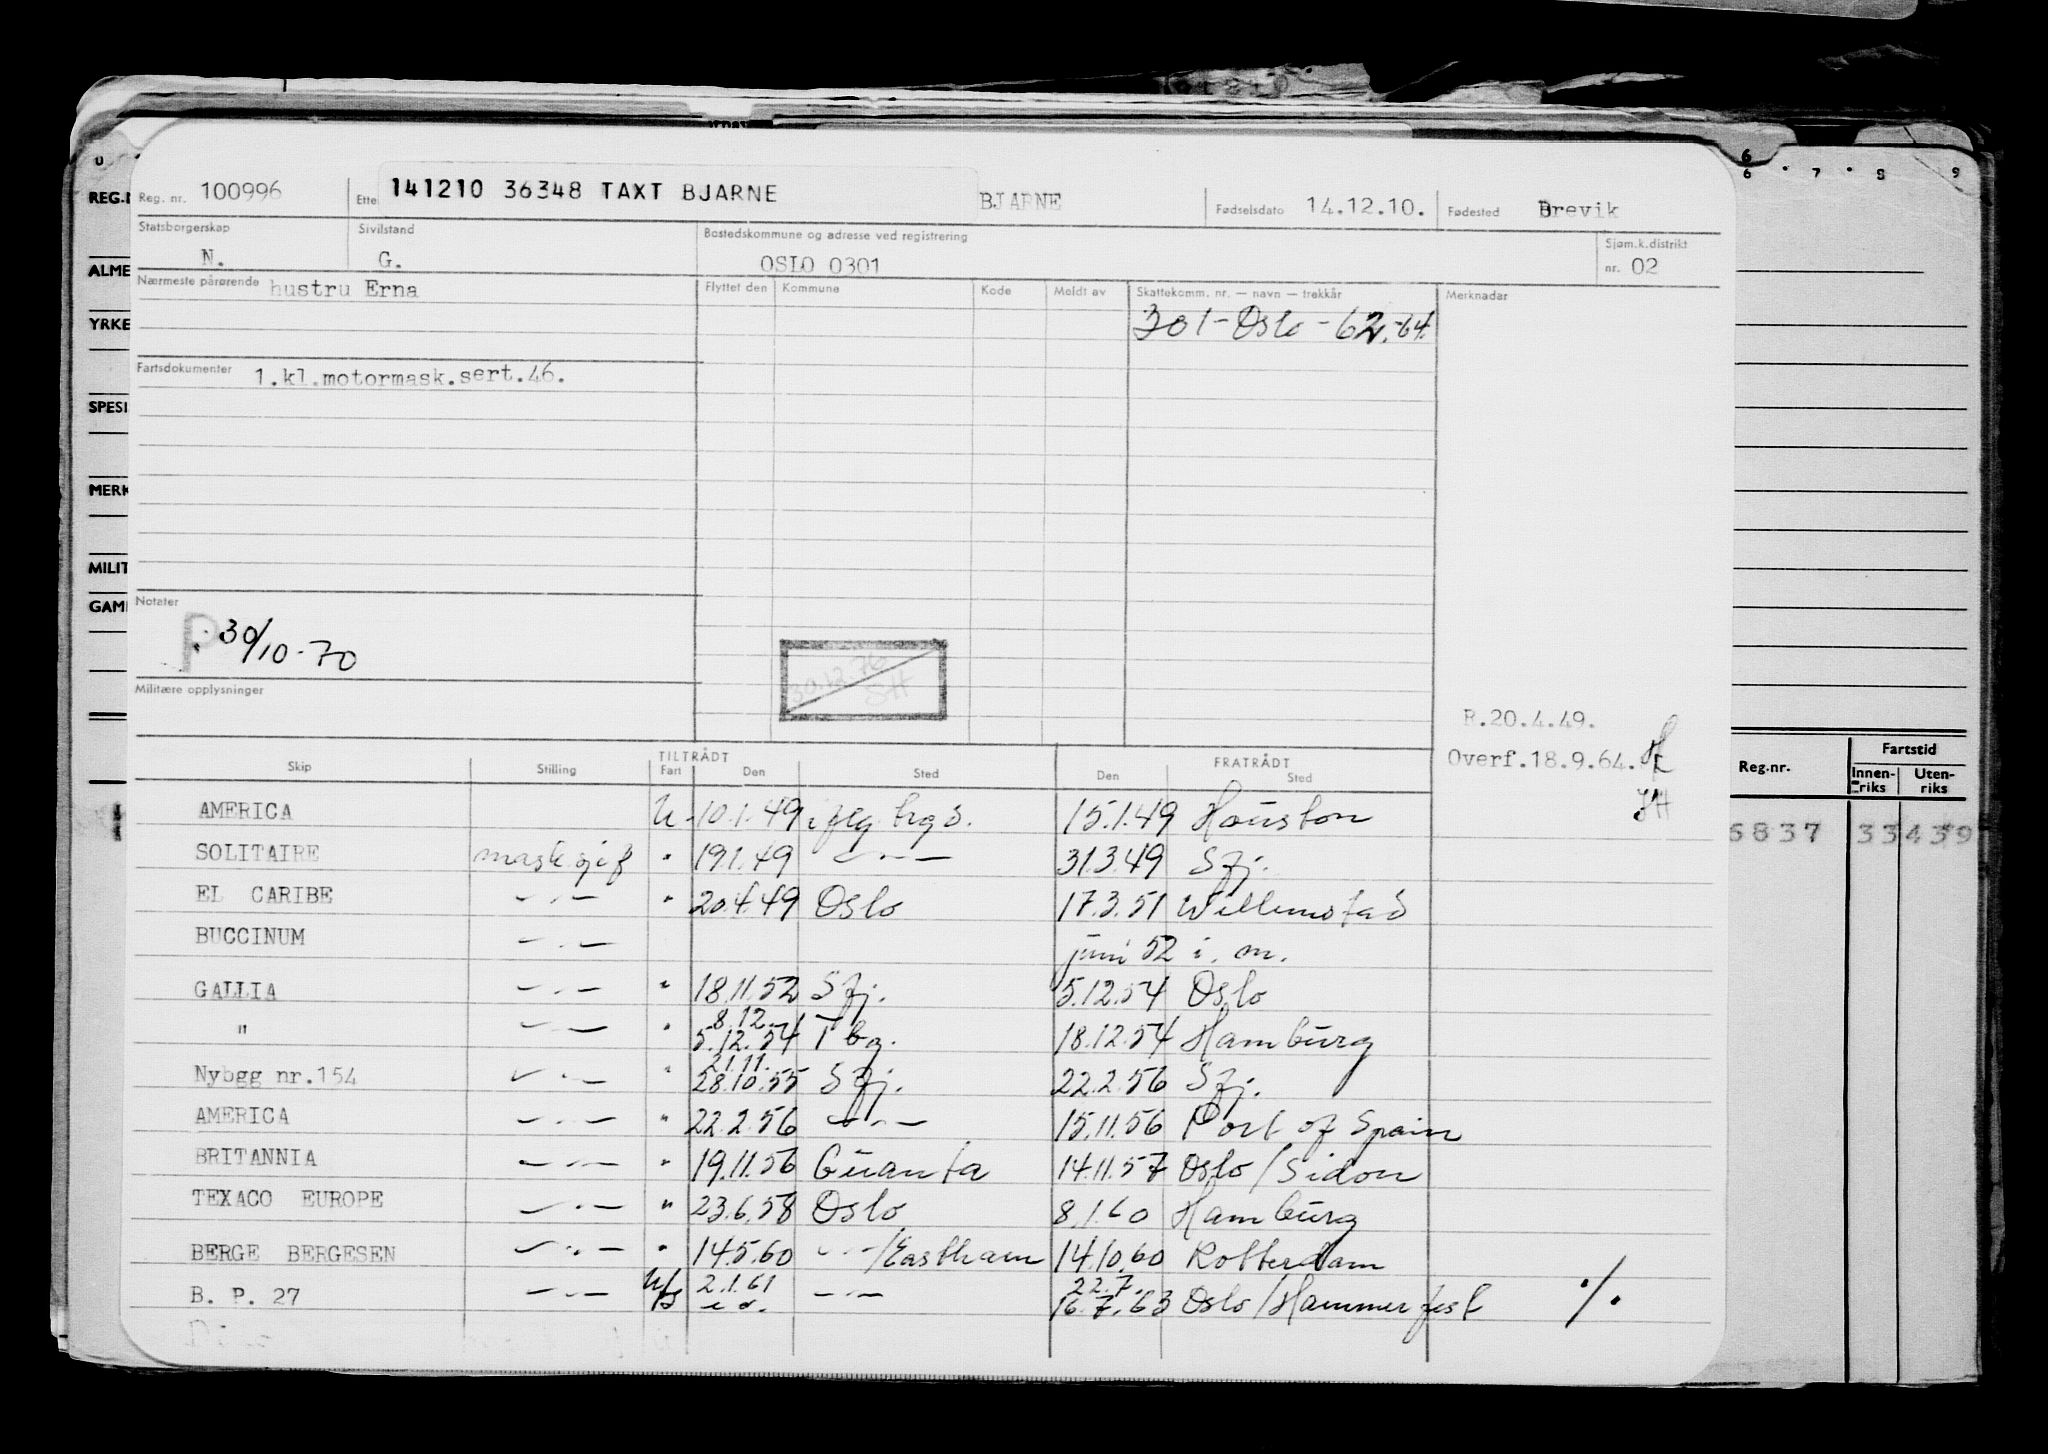 6 6 · 7 · 8 9
REG.N Reg. nr. 100996 Ette 141210 36348 TAXT BJARNE BJARNE Fødselsdato 14.12.10. Fødested Brevik
Statsborgerskap N. Sivilstand G. Bostedskommune og adresse ved registrering OSLO 0301 Sjøm.k.distrikt nr. 02
ALME
Nærmeste pårørende hustru Erna Flyttet den Kommune Kode Meldt av Skattekomm. nr. — navn — trekkår Merknadar
YRKE
301-Oslo-62.-64.
Fartsdokumenter 1.kl.motormask.sert.46.
SPESI
MERK
MILIT
GAMI Notater
P. 30/10-70
30.12.76 SH
Militære opplysninger
R.20.4.49.
Overf.18.9.64.
Skip Stilling TILTRÅDT Fart Den Sted FRATRÅDT Den Sted
Reg.nr. Fartstid Innen-riks Uten-riks
6837 33439
AMERICA U. 10.1.49 15.1.49 Houston
SOLITAIRE " 19.1.49 —"— 31.3.49 Sfj.
EL CARIBE —"— " 20.4.49 Oslo 17.3.51 Willemstad
BUCCINUM —"— juni 52 i. m.
GALLIA —"— " 18.11.52 Sfj. 5.12.54 Oslo
" —"— " 8.12. 5.12.54 Tbg. 18.12.54 Hamburg
Nybgg nr.154 —"— " 21.11. 28.10.55 Sfj. 22.2.56 Sfj.
AMERICA —"— " 22.2.56 —"— 15.11.56 Port of Spain
BRITANNIA —"— " 19.11.56 Guanta 14.11.57 Oslo/Sidon
TEXACO EUROPE —"— " 23.6.58 Oslo 8.1.60 Hamburg
BERGE BERGESEN —"— " 14.5.60 —"—/Eastham 14.10.60 Rotterdam
B. P. 27 —"— 2.1.61 —"— 22.7. 16.7.63 Oslo/Hammerfest ·/.